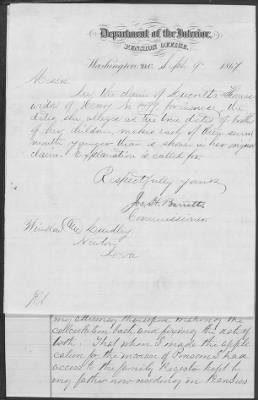 Department of the Interior,
PENSION OFFICE,
Washington D.C. Sept 9" 1867
In the claim of Lucretia
widow of Henry for increase, the
dates she alleges as the true dates of birth
of her children, makes each of them several
months younger than is shown in her original
claim. Explanation is called for.
Respectfully yours
Jos. H. Barrett
Commissioner.
Lindley
Newton
Iowa
my attorney
calculation back and fixing the date of
birth. That when I made the appli
cation for the increase of Pension I had
access to the family Register kept by
my father now residing in Kansas